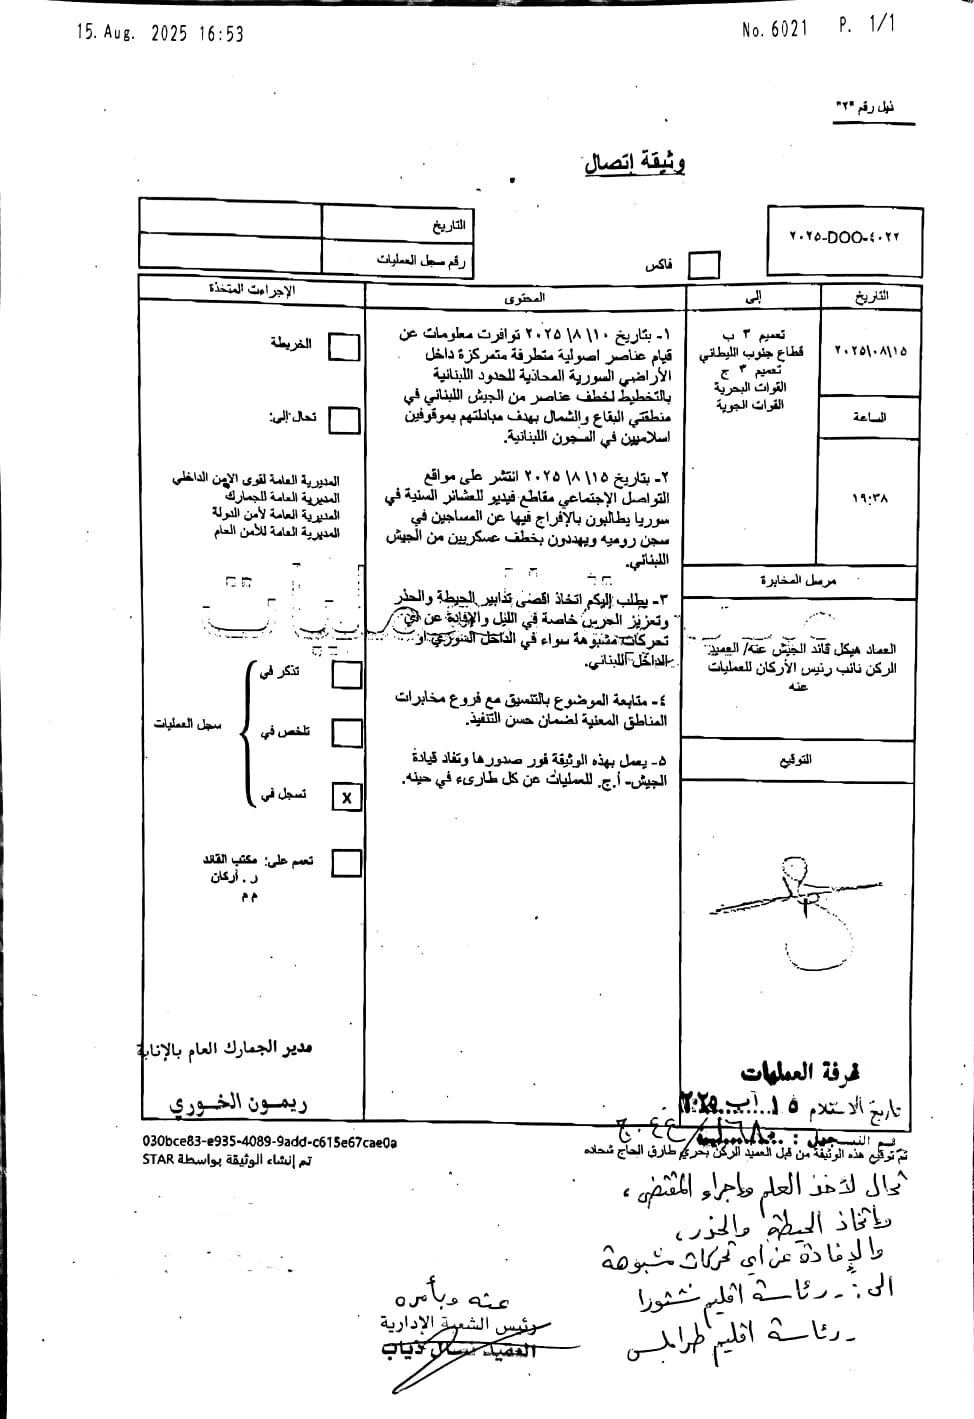 15. Aug. 2025 16:53
No. 6021 P. 1/1
ذيل رقم "٢"
وثيقة إتصال
٢٠٢٥-DOO-٤٠٢٢
فاكس
التاريخ
رقم سجل العمليات
التاريخ
إلى
المحتوى
الإجراءت المتخذة
٢٠٢٥\٠٨\١٥
الساعة
١٩:٣٨
تعميم ٣ ب
قطاع جنوب الليطاني
تعميم ٣ ج
القوات البحرية
القوات الجوية
مرسل المخابرة
العماد هيكل قائد الجيش عنه/ العميد
الركن نائب رئيس الأركان للعمليات
عنه
التوقيع
١- بتاريخ ١٠ \٨ \٢٠٢٥ توافرت معلومات عن
قيام عناصر اصولية متطرفة متمركزة داخل
الأراضي السورية المحاذية للحدود اللبنانية
بالتخطيط لخطف عناصر من الجيش اللبناني في
منطقتي البقاع والشمال بهدف مبادلتهم بموقوفين
اسلاميين في السجون اللبنانية.
٢- بتاريخ ١٥ \٨ \٢٠٢٥ انتشر على مواقع
التواصل الإجتماعي مقاطع فيديو للعشائر السنية في
سوريا يطالبون بالإفراج فيها عن المساجين في
سجن روميه ويهددون بخطف عسكريين من الجيش
اللبناني.
٣- يطلب إليكم اتخاذ اقصى تدابير الحيطة والحذر
وتعزيز الحرس خاصة في الليل والإفادة عن أي
تحركات مشبوهة سواء في الداخل السوري او
الداخل اللبناني.
٤- متابعة الموضوع بالتنسيق مع فروع مخابرات
المناطق المعنية لضمان حسن التنفيذ.
٥- يعمل بهذه الوثيقة فور صدورها وتفاد قيادة
الجيش- أ.ج. للعمليات عن كل طارىء في حينه.
الخريطة
تحال إلى:
المديرية العامة لقوى الامن الداخلي
المديرية العامة للجمارك
المديرية العامة لأمن الدولة
المديرية العامة للأمن العام
تذكر في
تلخص في
سجل العمليات
تسجل في
X
تعمم على: مكتب القائد
ر. أركان
م م
مدير الجمارك العام بالإنابة
ريمون الخوري
غرفة العمليات
تاريخ الاستلام ١٥ آب ٢٠٢٥
030bce83-e935-4089-9add-c615e67cae0a
تم إنشاء الوثيقة بواسطة STAR
تم توقيع هذه الوثيقة من قبل العميد الركن بحري طارق الحاج شحاده
تحال لأخذ العلم وإجراء المقتضى،
واتخاذ الحيطة والحذر،
والإفادة عن أي تحركات مشبوهة
الى: - رئاسة اقليم شتورا
- رئاسة اقليم طرابلس
عنه وبأمره
رئيس الشعبة الإدارية
العقيد ذياب